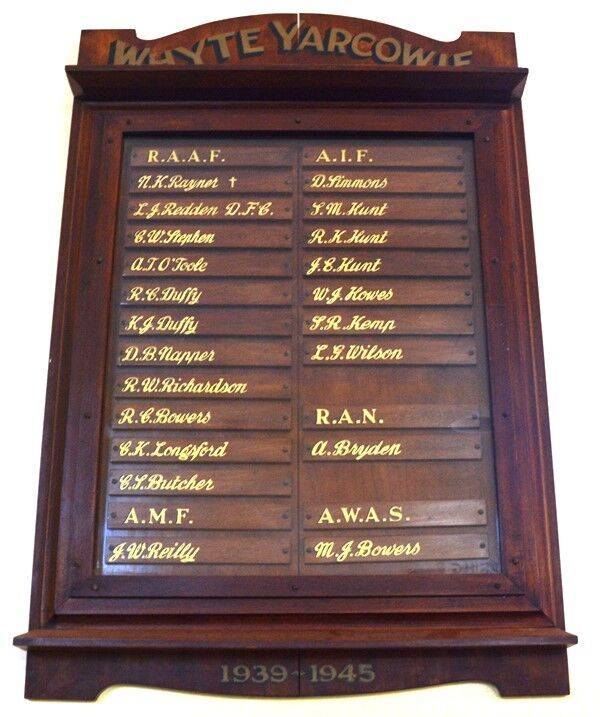 WHYTE YARCOWIE
R.A.A.F.
N.K.Rayner †
L.J.Redden D.F.C.
C.W.Stephen
A.T.O'Toole
R.C.Duffy
K.J.Duffy
D.B.Napper
R.W.Richardson
R.C.Bowers
C.K.Longsford
C.S.Butcher
A.M.F.
J.W.Reilly
A.I.F.
D.Simmons
S.M.Hunt
R.K.Hunt
J.C.Hunt
W.J.Howes
S.R.Kemp
L.G.Wilson
R.A.N.
A.Bryden
A.W.A.S.
M.J.Bowers
1939~1945